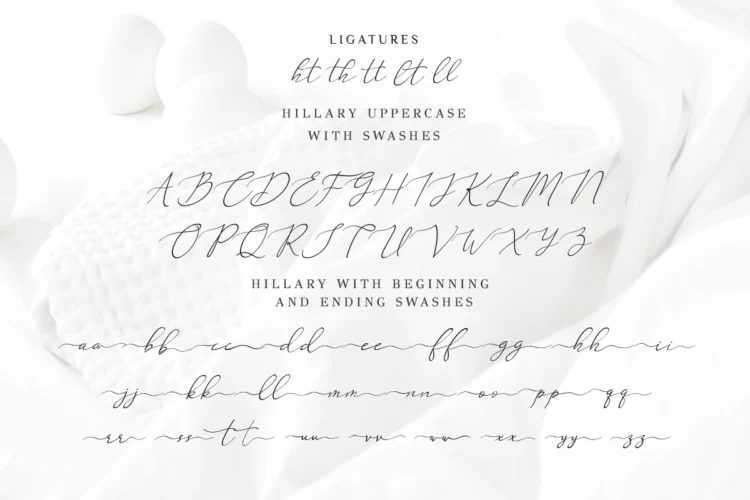 LIGATURES
ht th tt lt ll
HILLARY UPPERCASE
WITH SWASHES
A B C D E F G H I J K L M N
O P Q R S T U V W X Y Z
HILLARY WITH BEGINNING
AND ENDING SWASHES
aa bb cc dd ee ff gg hh ii
jj kk ll mm nn oo pp qq
rr ss tt uu vv ww xx yy zz